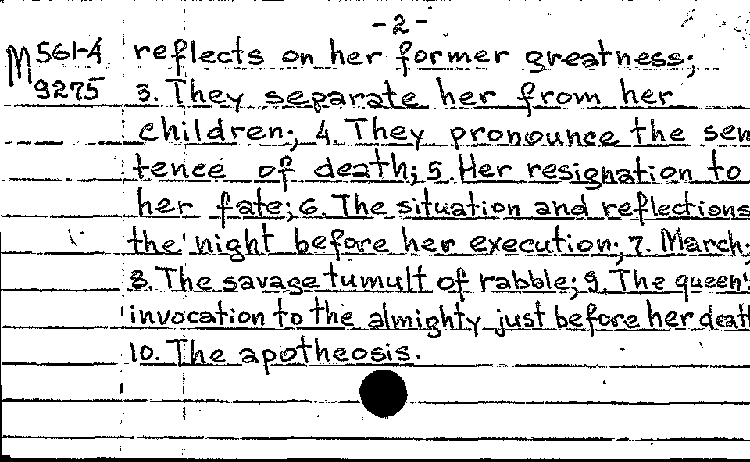 -2-
M 561-4 reflects on her former greatness;
9275 3. They separate her from her
children; 4. They pronounce the sen
tence of death; 5. Her resignation to
her fate; 6. The situation and reflections
the night before her execution; 7. March;
8. The savage tumult of rabble; 9. The queen's
invocation to the almighty just before her death
10. The apotheosis.